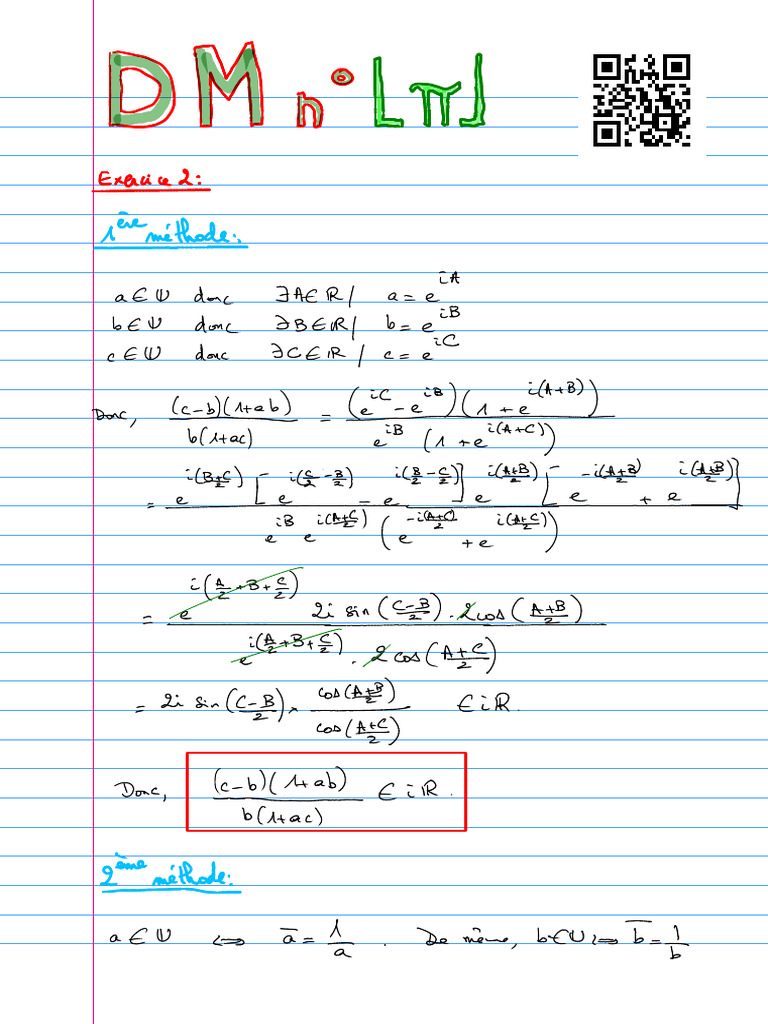 DM n° ⌊π⌋
Exercice 2:
1ère méthode:
a ∈ 𝕌 donc ∃A∈ℝ / a = e^{iA}
b ∈ 𝕌 donc ∃B∈ℝ / b = e^{iB}
c ∈ 𝕌 donc ∃C∈ℝ / c = e^{iC}
Donc, \frac{(c-b)(1+ab)}{b(1+ac)} = \frac{(e^{iC} - e^{iB})(1 + e^{i(A+B)})}{e^{iB}(1 + e^{i(A+C)})}
= \frac{e^{i(\frac{B+C}{2})}[e^{i(\frac{C}{2}-\frac{B}{2})} - e^{i(\frac{B}{2}-\frac{C}{2})}] e^{i(\frac{A+B}{2})}[e^{-i(\frac{A+B}{2})} + e^{i(\frac{A+B}{2})}]}{e^{iB} e^{i(\frac{A+C}{2})}(e^{-i(\frac{A+C}{2})} + e^{i(\frac{A+C}{2})})}
= \frac{e^{i(\frac{A}{2}+B+\frac{C}{2})} 2i sin(\frac{C-B}{2}) . 2cos(\frac{A+B}{2})}{e^{i(\frac{A}{2}+B+\frac{C}{2})} . 2cos(\frac{A+C}{2})}
= 2i sin(\frac{C-B}{2}) × \frac{cos(\frac{A+B}{2})}{cos(\frac{A+C}{2})} ∈ iℝ.
Donc, \frac{(c-b)(1+ab)}{b(1+ac)} ∈ iℝ.
2ème méthode:
a ∈ 𝕌 ⟺ \overline{a} = \frac{1}{a} . De même, b∈𝕌 ⟺ \overline{b} = \frac{1}{b}